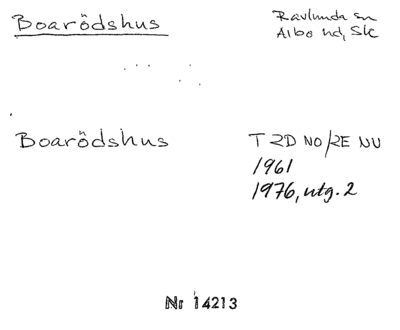 Boarödshus
Ravlunda sn
Albo hd, Sk
Boarödshus
T 2D NO/2E NV
1961
1976, utg. 2
Nr 14213